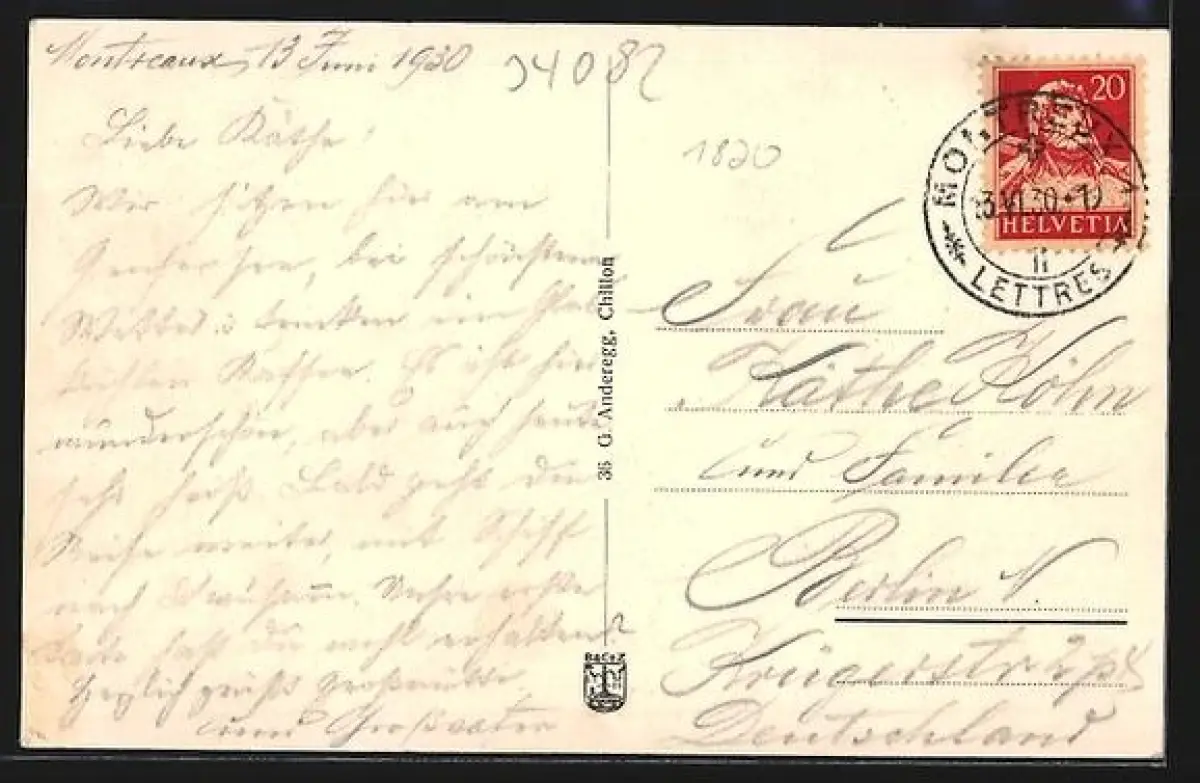 Montreaux, 13 Juni 1930
34082
1820
Liebe Käthe!
Wir sitzen hier am
Genfersee, bei schönstem
Wetter u. trinken ein
Kaffee. Es ist hier
wunderschön, aber auch heute
sehr heiß. Bald geht die
Reise weiter, mit Schiff
nach Unsre erste
Karte hast du wohl erhalten?
Herzlich grüßt Großmutter
und Großvater
36 G. Anderegg, Chillon
R&Co Z
20
HELVETIA
MONTREUX 1
13.VI.30
II
LETTRES
Frau
Käthe Köhn
und Familie
Berlin N.
Krügerstr.
Deutschland